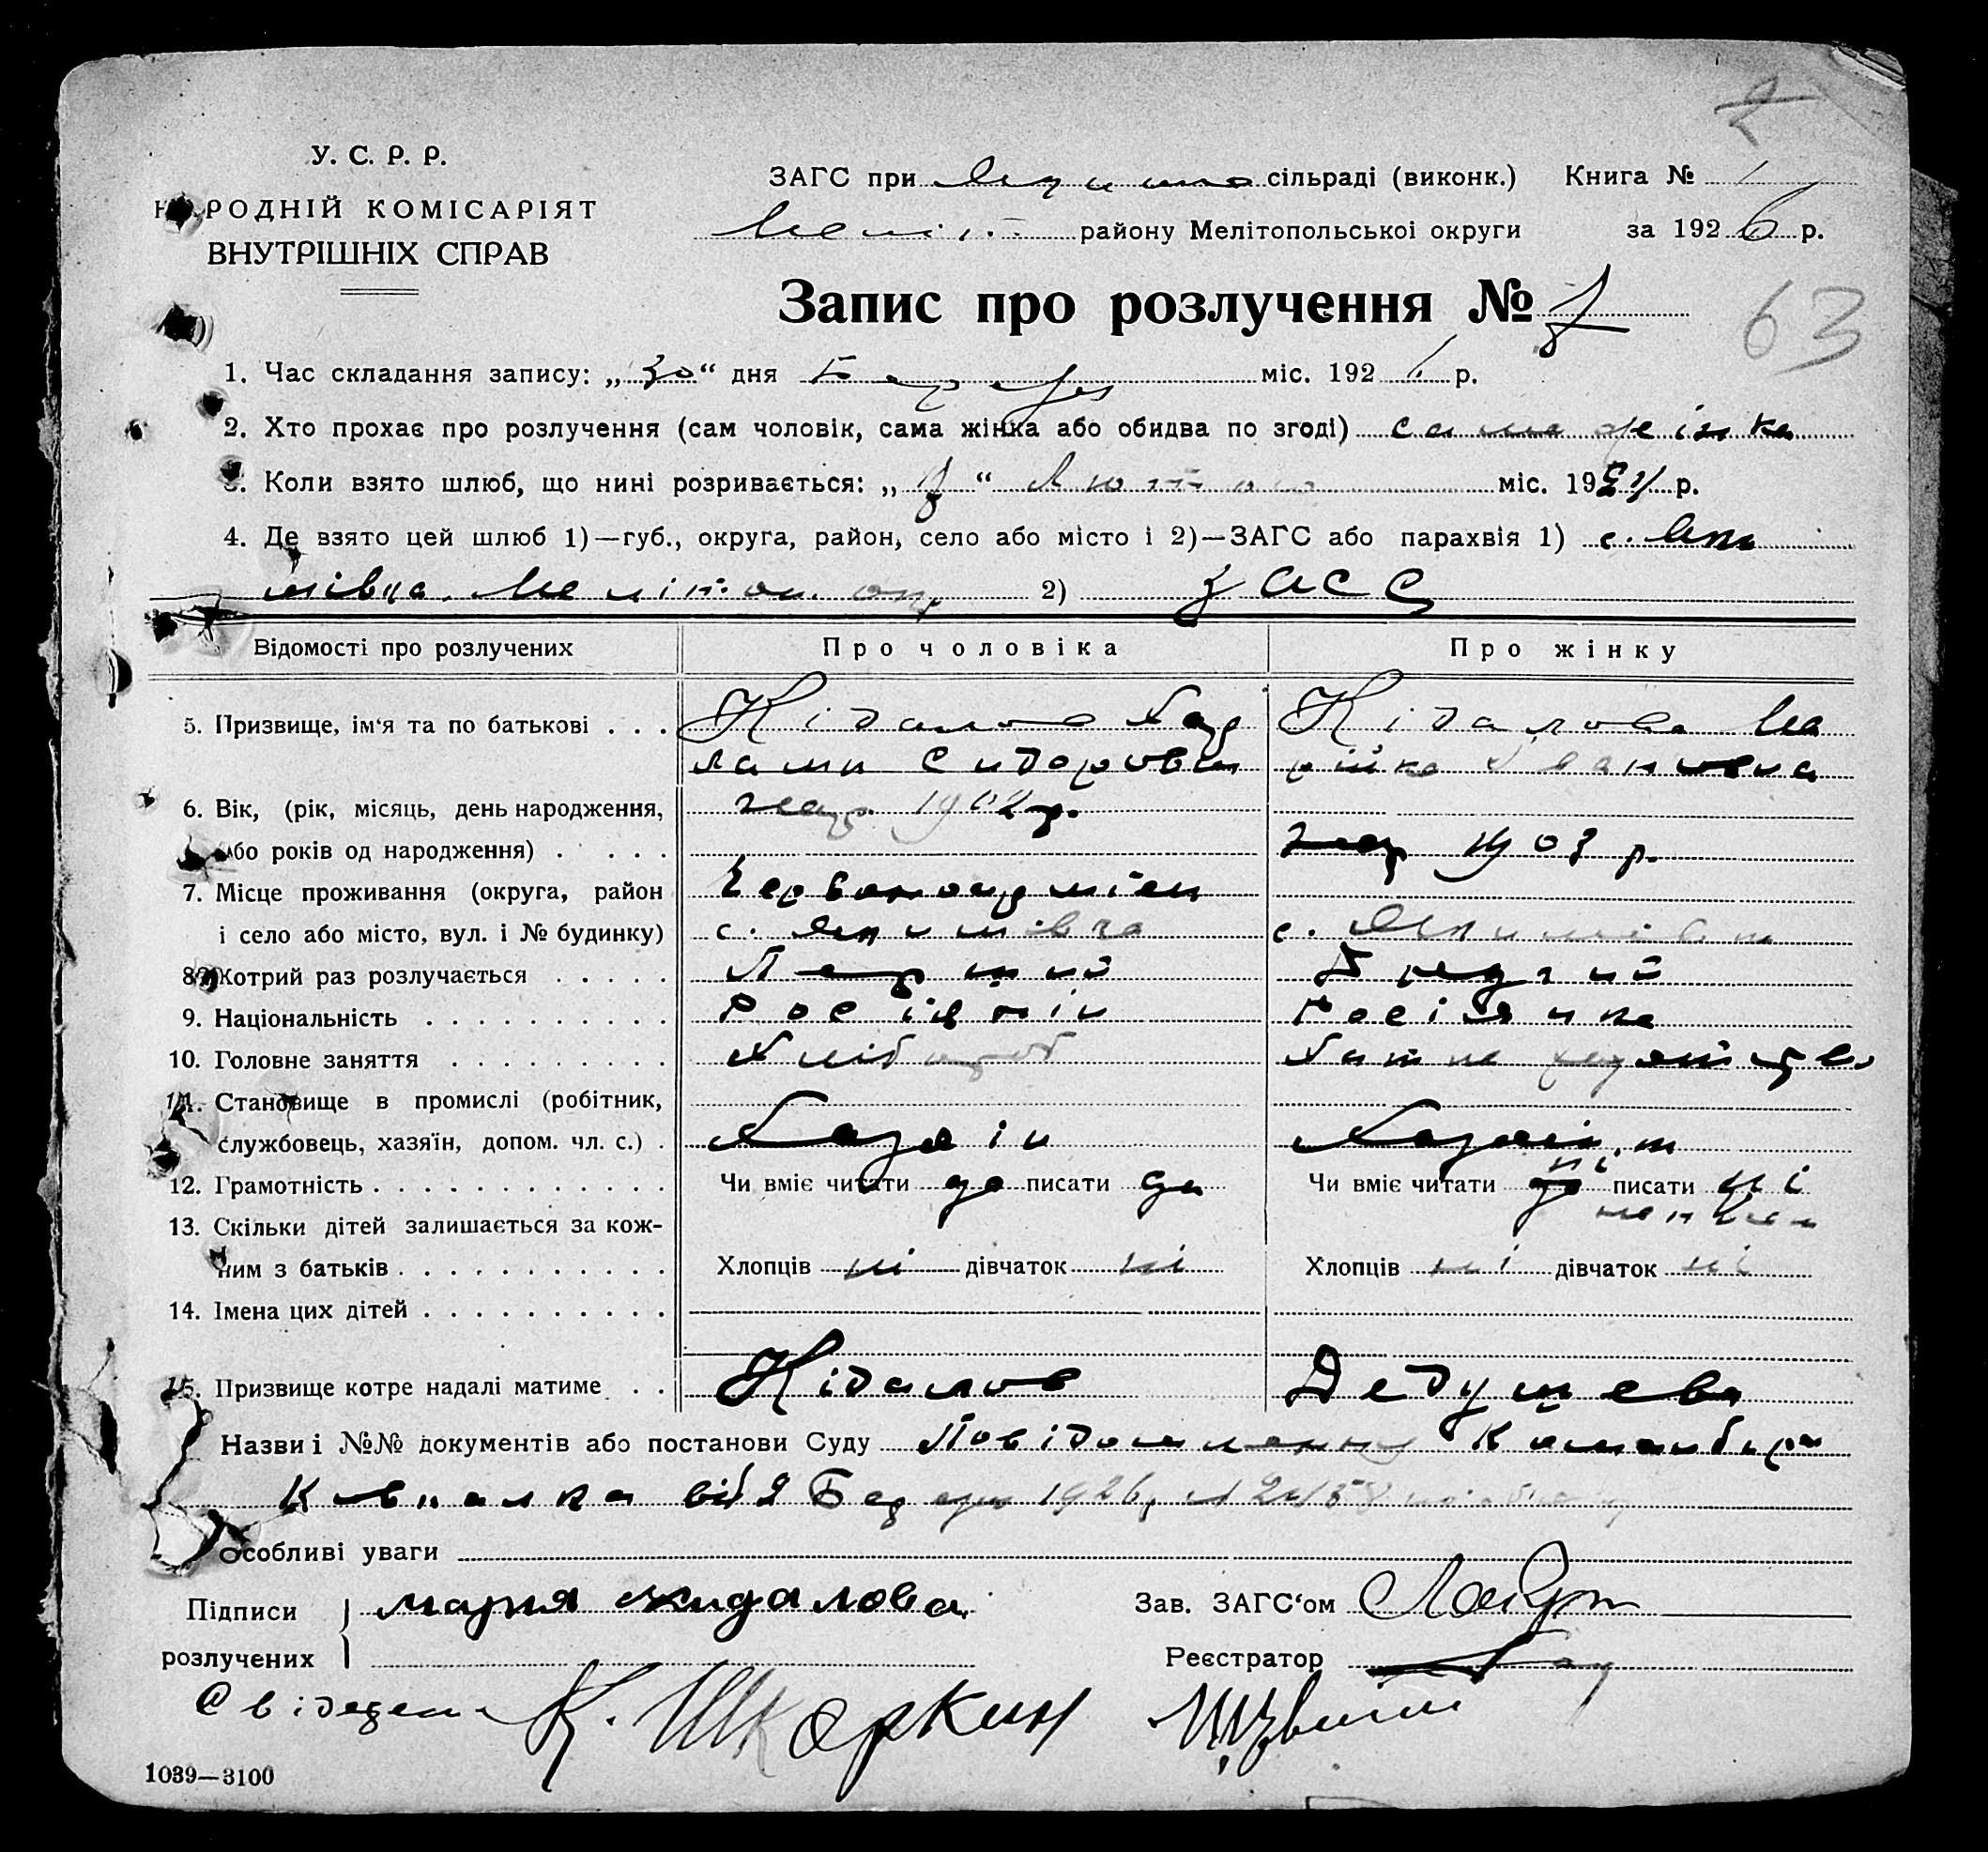 У. С. Р. Р.
НАРОДНІЙ КОМІСАРІЯТ
ВНУТРІШНІХ СПРАВ
ЗАГС при сільраді (виконк.) Книга № 1
Меліт. району Мелітопольської округи за 1926 р.
Запис про розлучення № 7
63
1. Час складання запису: „30“ дня міс. 1926 р.
2. Хто прохає про розлучення (сам чоловік, сама жінка або обидва по згоді) сама жінка
3. Коли взято шлюб, що нині розривається: „ “ Лютого міс. 1924 р.
4. Де взято цей шлюб 1)—губ., округа, район, село або місто і 2)—ЗАГС або парахвія 1) с. Яки
мівка. Меліт. окр. 2) ЗАГС
Відомості про розлучених Про чоловіка Про жінку
5. Призвище, ім'я та по батькові . . . Кідалов Хар Кідалова Ма
лами Сидорович рійка Івановна
6. Вік, (рік, місяць, день народження, нар. 1902 р.
або років од народження) . . . . . нар 1903 р.
7. Місце проживання (округа, район Червоноармієц
і село або місто, вул. і № будинку) с. Якимівка с. Якимівка
8. Котрий раз розлучається . . . . . Перший
9. Національність . . . . . . . . . . Росіянін Росіянка
10. Головне заняття . . . . . . . . . Хлібороб Хатне
11. Становище в промислі (робітник,
службовець, хазяїн, допом. чл. с.) . Хазяін
12. Грамотність . . . . . . . . . . . . Чи вміє читати да писати да Чи вміє читати ні писати ні
13. Скільки дітей залишається за кож-
ним з батьків . . . . . . . . . . . Хлопців ні дівчаток ні Хлопців ні дівчаток ні
14. Імена цих дітей . . . . . . . . . .
15. Призвище котре надалі матиме . . Кідалов Дедушева
Назви і №№ документів або постанови Суду Повідомлення Командира
Кавполка від 9 1926 р № 2458
Особливі уваги
Підписи мария кидалова Зав. ЗАГС'ом
розлучених Реєстратор
К. Шкаркин
1039—3100